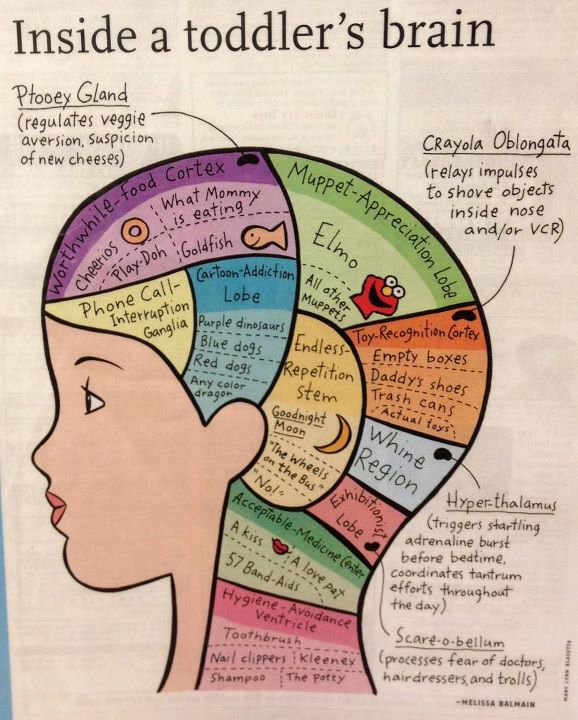 Inside a toddler's brain
Ptooey Gland
(regulates veggie
aversion, suspicion
of new cheeses)
Crayola Oblongata
(relays impulses
to shove objects
inside nose
and/or VCR)
Worthwhile-Food Cortex
What Mommy
is eating
Cheerios
Play-Doh
Goldfish
Muppet-Appreciation Lobe
Elmo
All other
Muppets
Phone Call-
Interruption
Ganglia
Cartoon-Addiction
Lobe
Purple dinosaurs
Blue dogs
Red dogs
Any color
dragon
Endless-
Repetition
Stem
Goodnight
Moon
"The Wheels
on the Bus"
"No!"
Toy-Recognition Cortex
Empty boxes
Daddy's shoes
Trash cans
Actual toys
Whine
Region
Exhibitionist
Lobe
Hyper-thalamus
(triggers startling
adrenaline burst
before bedtime,
coordinates tantrum
efforts throughout
the day)
Acceptable-Medicine Center
A kiss
A love pat
57 Band-Aids
Hygiene-Avoidance
Ventricle
Toothbrush
Nail clippers
Kleenex
Shampoo
The potty
Scare-o-bellum
(processes fear of doctors,
hairdressers, and trolls)
—MELISSA BALMAIN